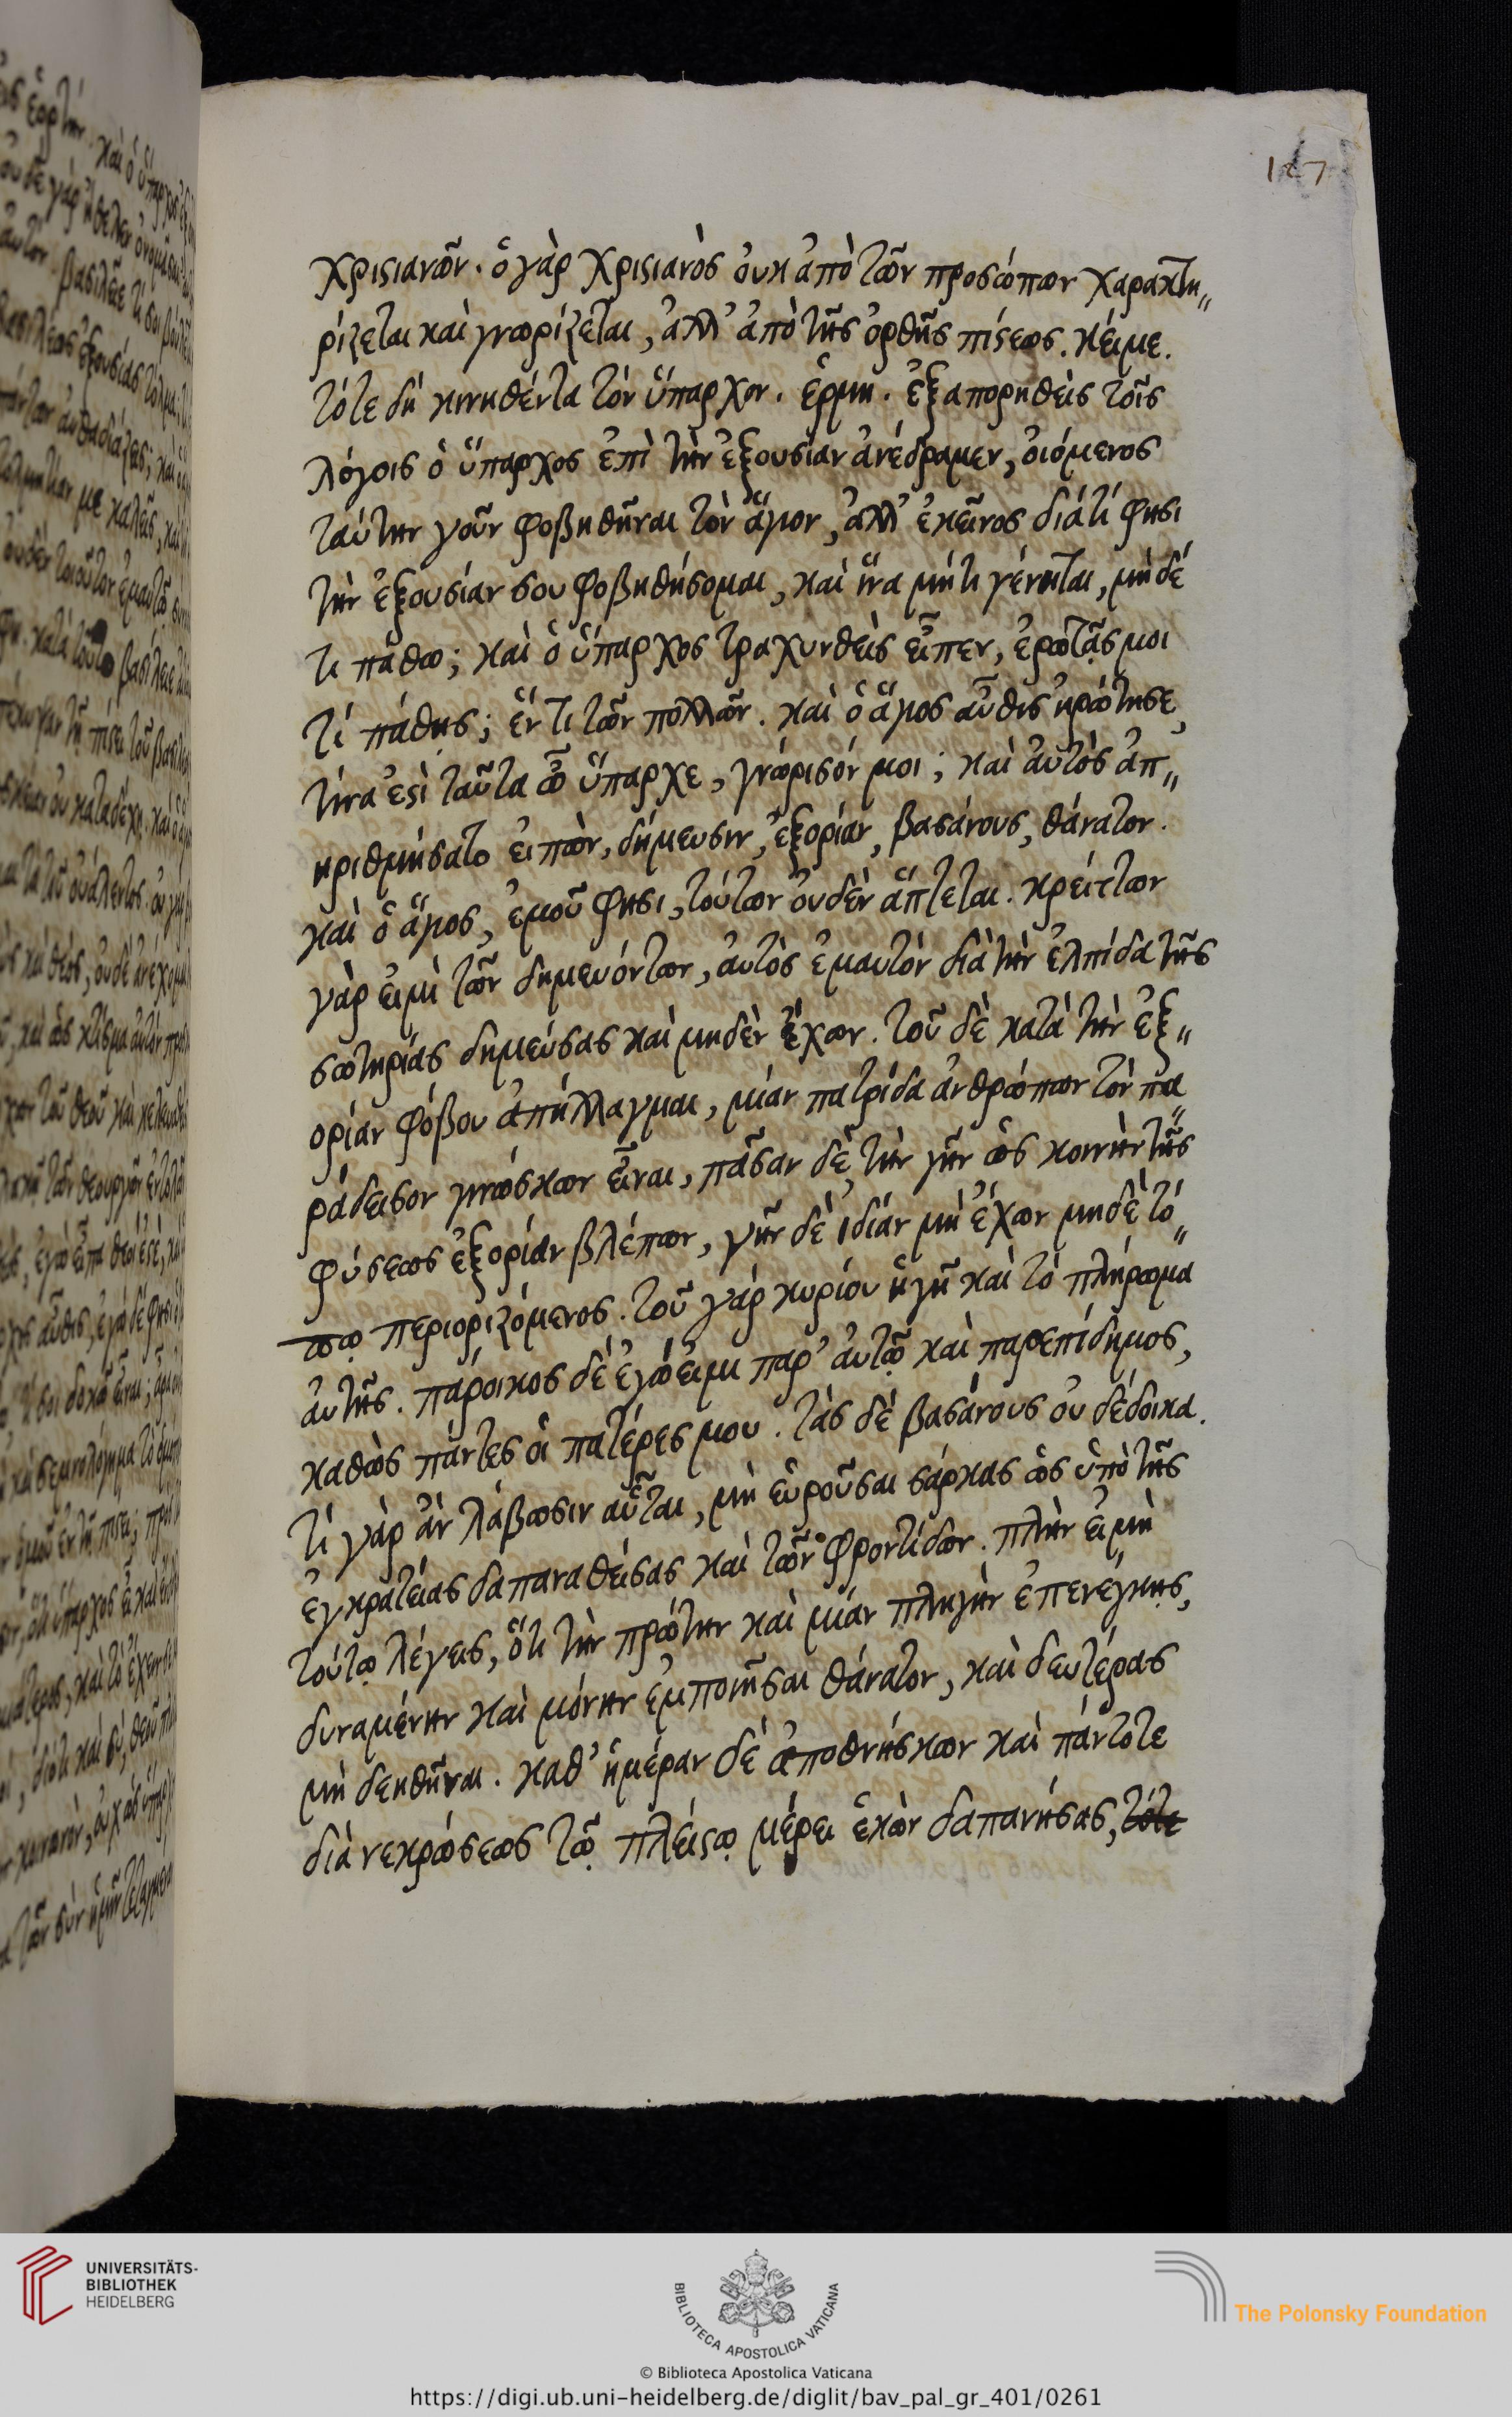 127
χριστιανῶν. ὁ γὰρ χριστιανὸς οὐκ ἀπὸ τῶν προσώπων χαρακτη„
ρίζεται καὶ γνωρίζεται, ἀλλ' ἀπὸ τῆς ὀρθῆς πίστεως. κείμε.
τότε δὴ κινηθέντα τὸν ὕπαρχον. ἑρμη. ἐξαπορηθεὶς τοῖς
λόγοις ὁ ὕπαρχος ἐπὶ τὴν ἐξουσίαν ἀνέδραμεν, οἰόμενος
ταύτην γοῦν φοβηθῆναι τὸν ἅγιον, ἀλλ' ἐκεῖνος διάτί φησι
τὴν ἐξουσίαν σου φοβηθήσομαι, καὶ ἵνα μήτι γένηται, μὴ δέ
τι πάθω; καὶ ὁ ὕπαρχος τραχυνθεὶς εἶπεν, ἐρωτᾷς μοι
τί πάθῃς; ἕν τι τῶν πολλῶν. καὶ ὁ ἅγιος αὖθις ἠρώτησε,
τίνα ἐστὶ ταῦτα ὦ ὕπαρχε, γνώρισόν μοι; καὶ αὐτὸς ἀπ„
ηριθμήσατο εἰπὼν, δήμευσιν, ἐξορίαν, βασάνους, θάνατον.
καὶ ὁ ἅγιος, ἐμοῦ φησι, τούτων οὐδὲν ἅπτεται. κρείττων
γὰρ εἰμὶ τῶν δημευόντων, αὐτὸς ἐμαυτὸν διὰ τὴν ἐλπίδα τῆς
σωτηρίας δημεύσας καὶ μηδὲν ἔχων. τοῦ δὲ κατὰ τὴν ἐξ„
ορίαν φόβου ἀπήλλαγμαι, μίαν πατρίδα ἀνθρώπων τὸν πα„
ράδεισον γινώσκων εἶναι, πᾶσαν δὲ, τὴν γῆν ὡς κοινὴν τῆς
φύσεως ἐξορίαν βλέπων, γῆν δὲ ἰδίαν μὴ ἔχων μηδὲ τό„
πῳ περιοριζόμενος. τοῦ γὰρ κυρίου ἡ γῆ καὶ τὸ πλήρωμα
αὐτῆς. πάροικος δὲ ἐγώ εἰμι παρ' αὐτῷ καὶ παρεπίδημος,
καθὼς πάντες οἱ πατέρες μου. τὰς δὲ βασάνους οὐ δέδοικα.
τί γὰρ ἂν λάβωσιν αὗται, μὴ εὑροῦσαι σάρκας ὡς ὑπὸ τῆς
ἐγκρατείας δαπανηθείσας καὶ τῶν φροντίδων. πλὴν εἰ μὴ
τούτῳ λέγεις, ὅτι τὴν πρώτην καὶ μίαν πληγὴν ἐπενέγκῃς,
δυναμένην καὶ μόνην ἐμποιῆσαι θάνατον, καὶ δευτέρας
μὴ δεηθῆναι. καθ' ἡμέραν δὲ ἀποθνήσκων καὶ πάντοτε
διὰ νεκρώσεως τῷ πλείστῳ μέρει ἑκὼν δαπανήσας, τότε
UNIVERSITÄTS-
BIBLIOTHEK
HEIDELBERG
BIBLIOTECA APOSTOLICA VATICANA
The Polonsky Foundation
© Biblioteca Apostolica Vaticana
https://digi.ub.uni-heidelberg.de/diglit/bav_pal_gr_401/0261